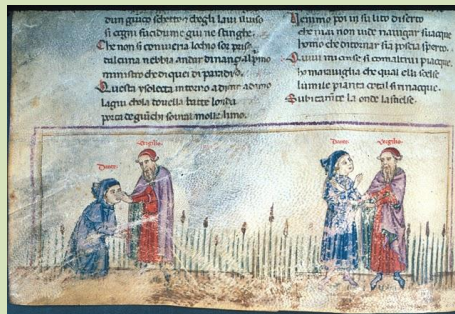 dun giuco schetto τ chegli laui iluiso
si cogni sucidume qui ne stinghe.
Che non si conuena lochio sor priso
dalcuna nebbia andar dinanci alpimo
ministro che di quei di paradiso.
Questa isoletta intorno adimo adimo
lagiu chola douella batte londa
porta de giuchi soural molle limo.
Uenimo poi in su lito diserto
che mai non uide nauigar sue acque
homo che di tornar sia poscia sperto.
Quiui mi cinse si comaltrui piacque
ho marauiglia che qual elli scelse
lumile pianta cotal si rinacque.
la onde
Dante
Virgilio
Dante
Virgilio